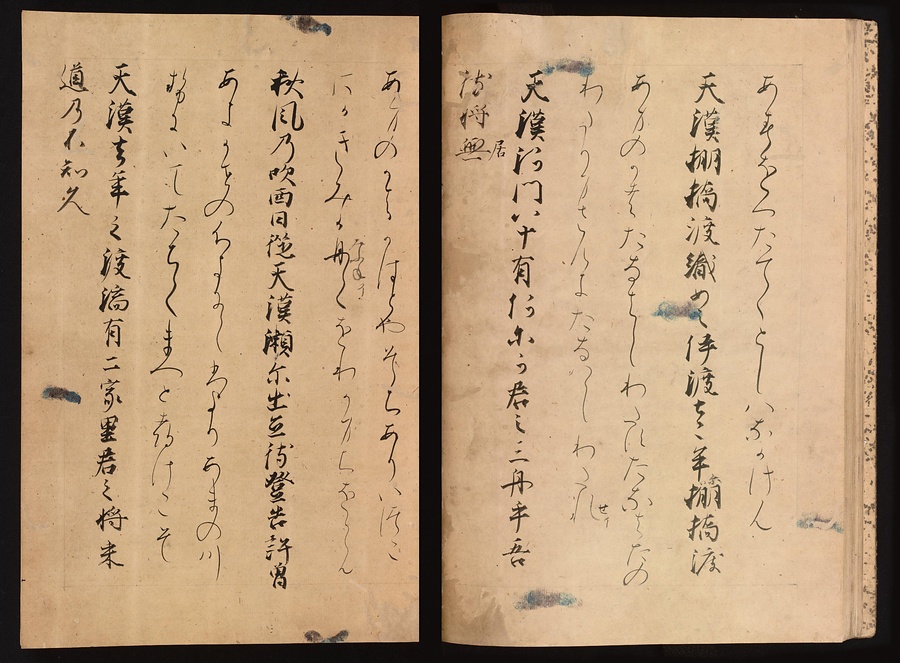 あすをへたてゝとしはなかけん
天漢棚橋渡織女之伊渡左牟棚橋渡
あまのかはたなはしわたせたなはたの
わたらせんにたなはしわたせ
天漢河門八十有何尓可君之三舟乎吾
待将居
あまのかはかはとやそちありいつこ
にかきみか舟をわかまちをらん
秋風乃吹西日従天漢瀬尓出立待登告許曽
あきかせのふきにしひよりあまの川
せにいてたちてまつとつけこそ
天漢去年之渡湍有二家里君之将来
道乃不知久